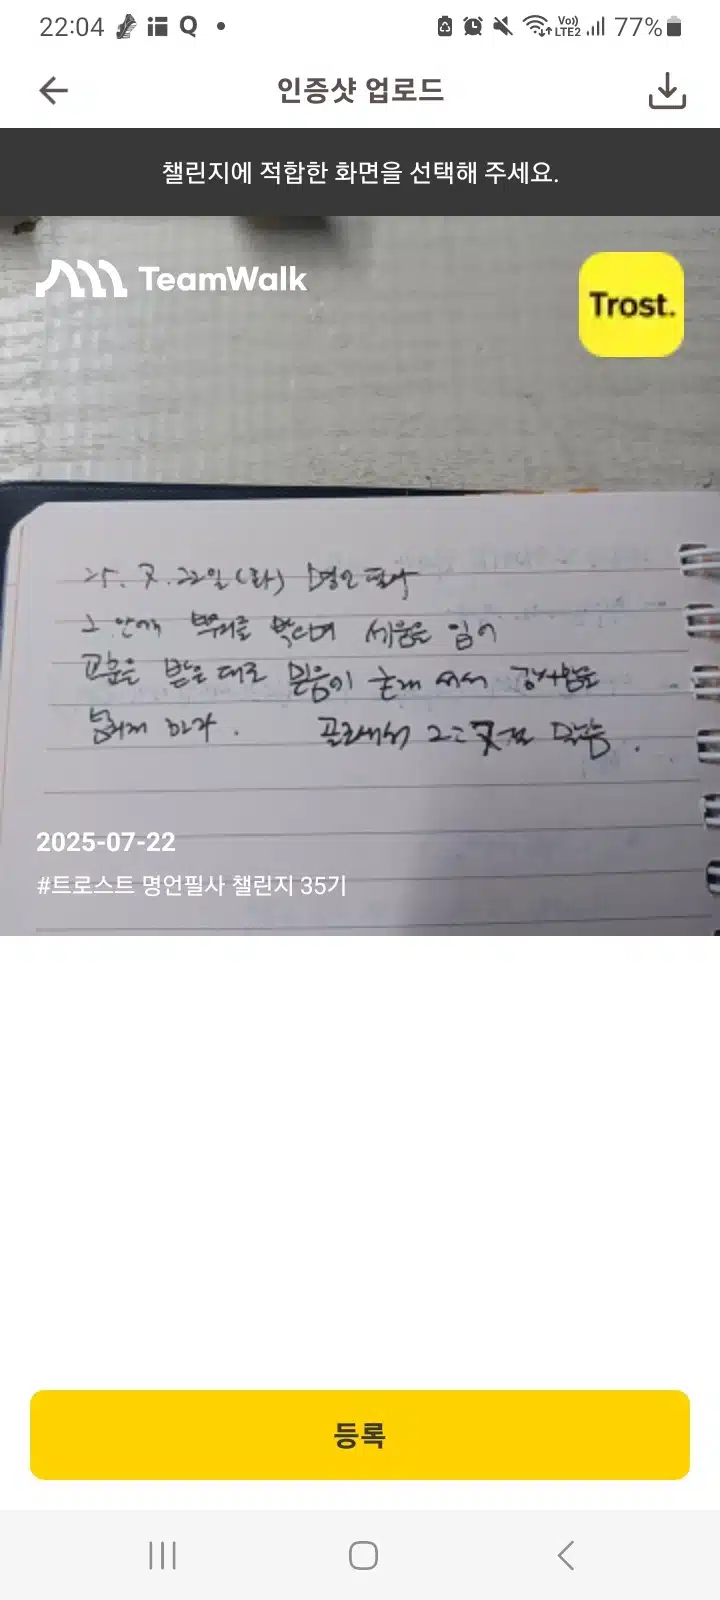 22:04 Q
Vo)) LTE2 77%
인증샷 업로드
챌린지에 적합한 화면을 선택해 주세요.
TeamWalk
Trost.
25. 7. 22일(화) 명언 필사
그 안에 뿌리를 박으며 세움을 입어
교훈을 받은 대로 믿음에 굳게 서서 감사함을
넘치게 하라. 골로새서 2:7절 말씀.
2025-07-22
#트로스트 명언필사 챌린지 35기
등록